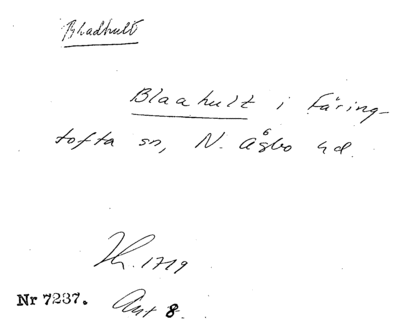 Bladhult
Blaahult i Färing-
tofta sn, N. Åsbo hd.
1719
Nr 7237. Ant 8.